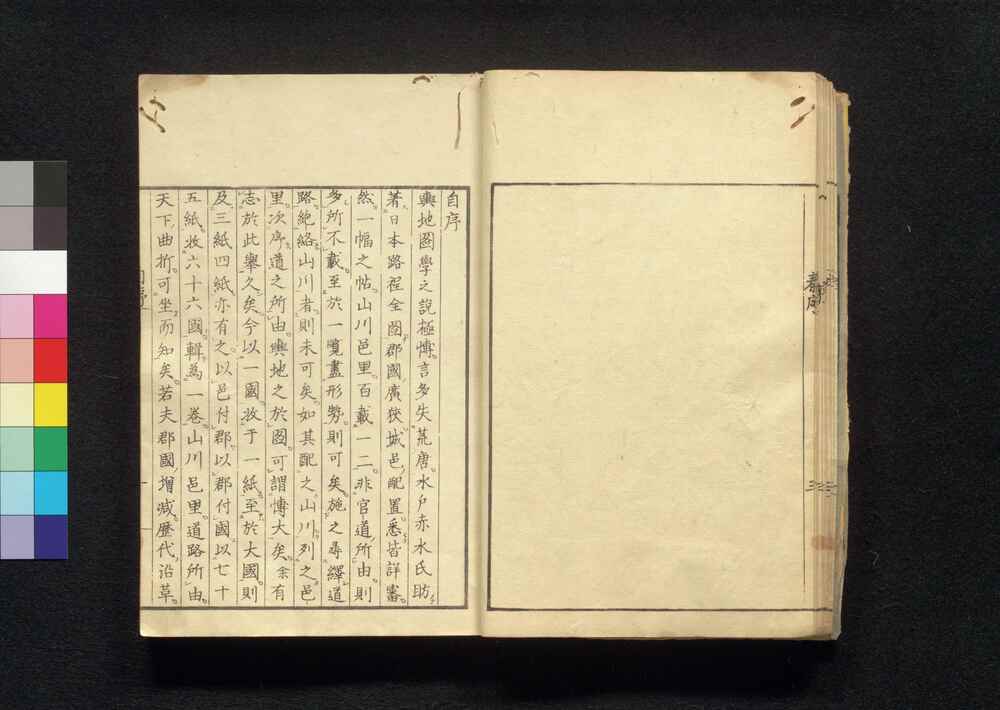 自序
輿地圖學之說極博言多失荒唐水戶赤水氏昉
著日本路程全圖郡國廣狹城邑配置悉皆詳審
然一幅之帖山川邑里百載一二非官道所由則
多所不載至於一覽盡形勢則可矣施之尋繹道
路絶絡山川者則未可矣如其配之山川列之邑
里次序道之所由輿地之於圖可謂博大矣余有
志於此擧久矣今以一國收于一紙至於大國則
及三紙四紙亦有之以邑付郡以郡付國以七十
五紙收六十六國輯為一卷山川邑里道路所由
天下曲折可坐而知矣若夫郡國增減歷代沿革